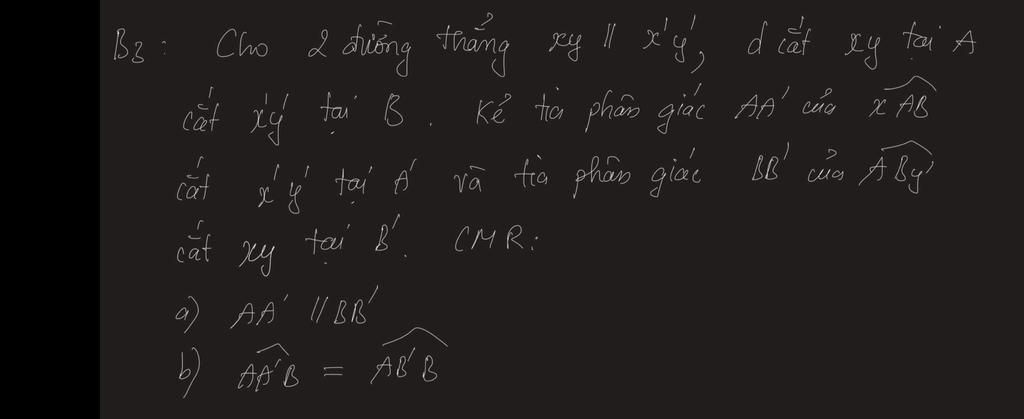 B3: Cho 2 đường thẳng xy // x'y', d cắt xy tại A
cắt x'y' tại B. Kẻ tia phân giác AA' của xAB
cắt x'y' tại A' và tia phân giác BB' của ABy'
cắt xy tại B'. CMR:
a) AA' // BB'
b) AA'B = AB'B